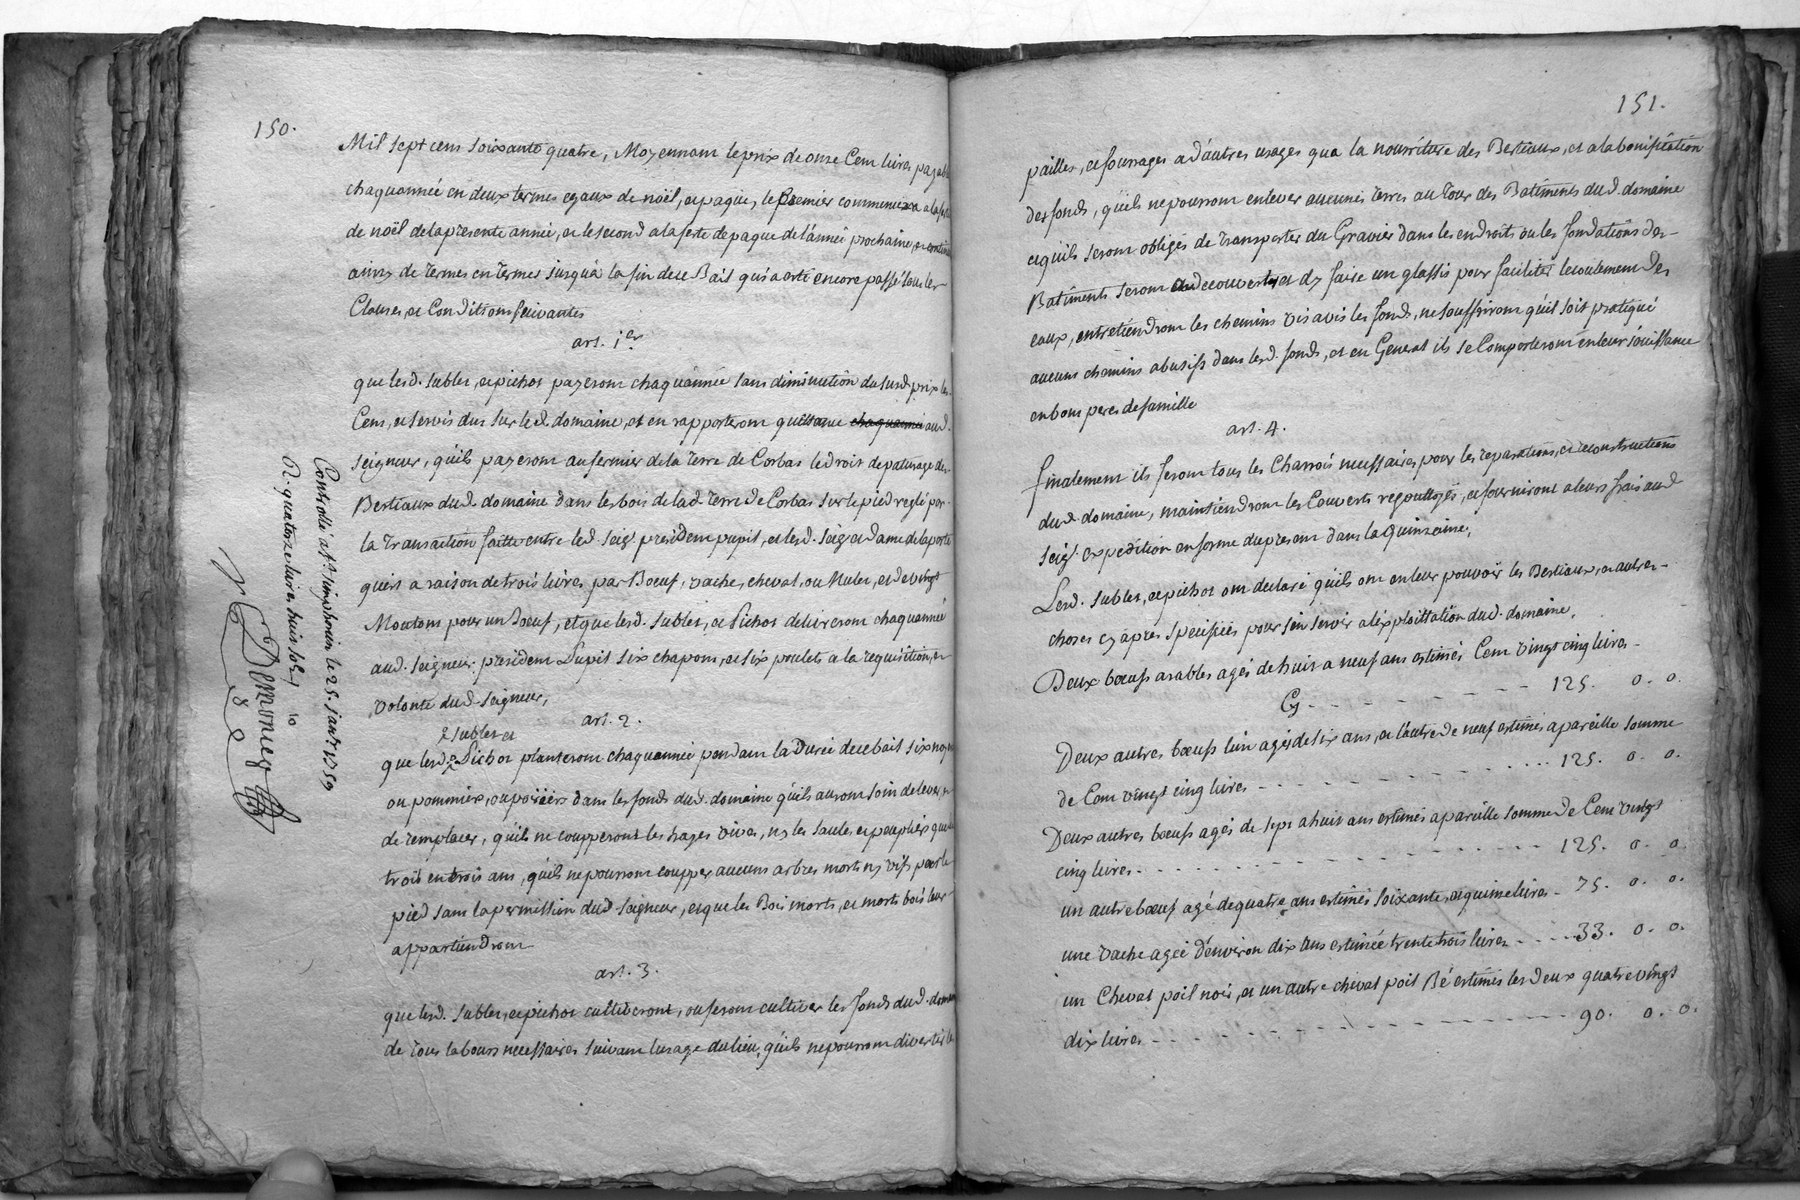 150.
Mil sept cens soixante quatre, Moyennant le prix de onse Cent livres payable
chaquannée en deux termes egaux de noël, et paque, le Premier commencera a la feste
de noël de la presente année, et le second a la feste de paque de l'année prochaine, et continüe
ainsy de termes en termes jusqu'à la fin de ce Bail qui a esté encore passé sous les
Clauses, et Conditions suivantes
art. 1er
que lesd. sublet, et pichot payeront chaquannée sans diminution du susd. prix les
Cens, et servis dus sur le d. domaine, et en rapporteront quittance chaquannée aud.
seigneur, qu'ils payeront au fermier de la Terre de Corbas le droit de paturage des
Bestiaux dud. domaine dans les bois de lad. terre de Corbas sur le pied reglé par
la Transaction faitte entre led. seigr. president pupil, et lesd. seigr. et dame de la porte
qui est a raison de trois livres par Boeuf, vache, cheval, ou Mulet, et de vingt
Moutons pour un Boeuf, et que lesd. sublet, et Pichot delivreront chaquannée
aud. seigneur president Pupil six chapons, et six poulets a la requisition, et
volonté dud. seigneur,
art. 2.
sublet et
que lesd. Pichot planteront chaquannée pendant la Durée de ce bail six noyers
ou pommiers, ou poiriers dans les fonds dud. domaine qu'ils auront soin de lever, et
de remplacer, qu'ils ne coupperont les hayes vives, ny les saules, et peupliers que de
trois en trois ans, qu'ils ne pourront coupper aucuns arbres morts ny vifs par le
pied sans la permission dud. seigneur, et que les Bois morts, et morts bois leur
appartiendront
art. 3.
que lesd. sublet, et pichot cultiveront, ou feront cultiver les fonds dud. domaine
de tous labours necessaires suivant l'usage du lieu, qu'ils ne pourront divertir les
Controllé a st. simphorien le 25. janr. 1759
R. quatorze livres huit sols
151.
pailles, et fourrages a d'autres usages qua la nourriture des Bestiaux, et a la bonification
des fonds, qu'ils ne pourront enlever aucunes terres au tour des Batiments dud. domaine
et qu'ils seront obligés de transporter du Gravier dans les endroits ou les fondations des
Batiments seront decouvertes et d'y faire un glassis pour faciliter lecoulement des
eaux, entretiendront les chemins vis avis les fonds, ne souffriront qu'il soit pratiqué
aucuns chemins abusifs dans lesd. fonds, et en General ils se Comporteront en leur jouissance
en bons peres de famille
art. 4.
finalement ils feront tous les Charrois necessaires pour les reparations, et reconstructions
dud. domaine, maintiendront les Couverts regouttoyés, et fourniront a leurs frais aud.
seigr. expedition en forme du present dans la Quinzaine,
Lesd. sublet, et pichot ont declaré qu'ils ont en leur pouvoir les Bestiaux, et autres
choses cy après specifiées pour s'en servir a l'exploittation dud. domaine,
Deux boeufs arables agés de huit a neuf ans estimés Cent vingt cinq livres
Cy - - - - - - - - 125. 0. 0.
Deux autres boeufs l'un agés de six ans, et l'autre de neuf estimés a pareille somme
de Cent vingt cinq livres - - - - - - - - 125. 0. 0.
Deux autres boeufs agés de sept a huit ans estimés a pareille somme de Cent vingt
cinq livres - - - - - - - - 125. 0. 0.
un autre boeuf agé de quatre ans estimés soixante, et quinze livres - 75. 0. 0.
une vache agée d'environ dix ans estimée trente trois livres - - - - 33. 0. 0.
un Cheval poil noir, et un autre cheval poil Bé estimés les deux quatre vingt
dix livres - - - - - - - - 90. 0. 0.